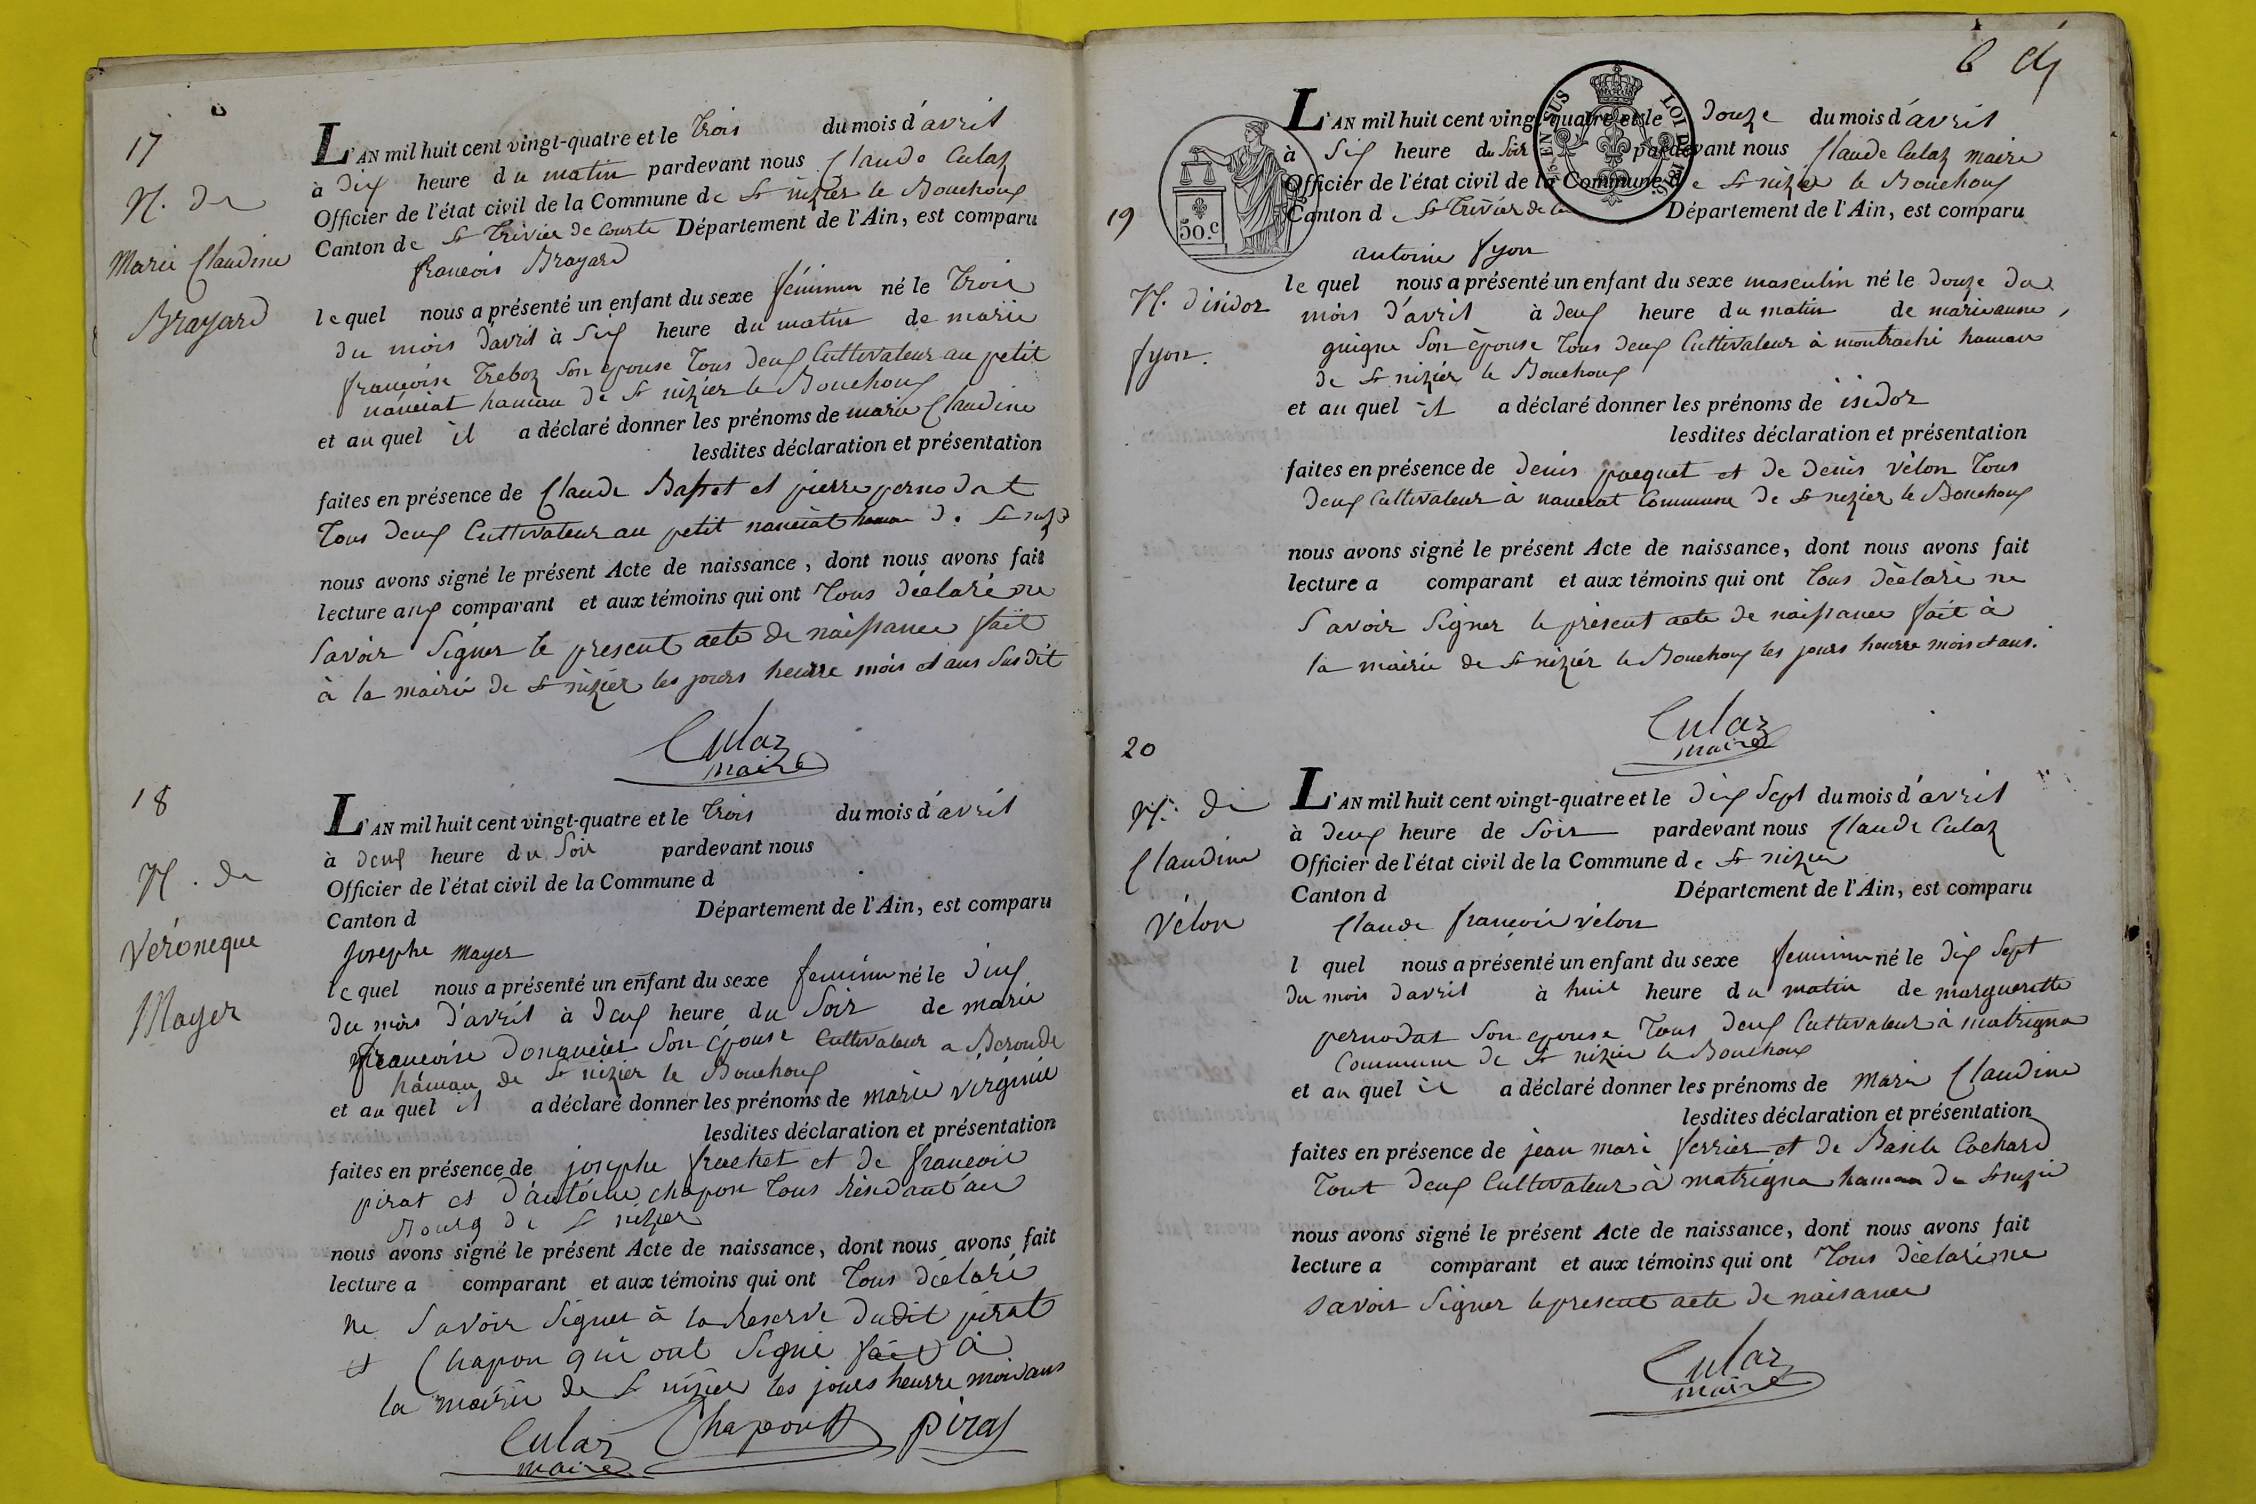 17
N. de
Marie Claudine
Brayard
L'AN mil huit cent vingt-quatre et le Trois du mois d'avril
à dix heure du matin pardevant nous Claude Culaz
Officier de l'état civil de la Commune de St nizier le Bouchoux
Canton de St Trivier de Courte Département de l'Ain, est comparu
francois Brayard
lequel nous a présenté un enfant du sexe féminin né le Trois
du mois d'avril à Six heure du matin de marie
francoise Treboz Son epouse Tous deux Cultivateur au petit
nanciat hamau de St nizier le Bouchoux
et au quel il a déclaré donner les prénoms de marie Claudine
lesdites déclaration et présentation
faites en présence de Claude Basset et pierre pernodat
Tous deux Cultivateur au petit nanciat hamau de St niz
nous avons signé le présent Acte de naissance, dont nous avons fait
lecture aux comparant et aux témoins qui ont Tous déclaré ne
Savoir Signer le present acte de naissance fait
à la mairie de St nizier les jours heurre mois et ans Susdit
Culaz
maire
18
N. de
Véroneque
Mayer
L'AN mil huit cent vingt-quatre et le Trois du mois d'avril
à deux heure du Soir pardevant nous
Officier de l'état civil de la Commune d
Canton d Département de l'Ain, est comparu
Josephe Mayer
lequel nous a présenté un enfant du sexe feminin né le deux
du mois d'avril à deux heure du Soir de marie
francoise Donguier Son épouse Cultivateur a Beroude
hamau de St nizier le Bouchoux
et au quel il a déclaré donner les prénoms de marie virginie
lesdites déclaration et présentation
faites en présence de josephe frachet et de francois
pirat et d'antoine chapon Tous résidant au
Bourg de St nizier
nous avons signé le présent Acte de naissance, dont nous avons fait
lecture a comparant et aux témoins qui ont Tous déclaré
ne Savoir Signer à la Reserve dudit pirat
et Chapon qui ont Signé fait à
la mairie de St nizier les jours heurre mois ans
Culaz Chapon Pirat
maire
6
L'AN mil huit cent vingt-quatre et le Douze du mois d'avril
à Six heure du Soir pardevant nous Claude Culaz maire
Officier de l'état civil de la Commune de St nizier le Bouchoux
19
Canton d St Trivier de Département de l'Ain, est comparu
EN SUS
LOI DE
50.c
antoine fyon
N. d'isidor
fyon.
le quel nous a présenté un enfant du sexe masculin né le douze du
mois d'avril à deux heure du matin de marieanne
guigue Son épouse Tous deux Cultivateur à montrachi hamau
de St nizier le Bouchoux
et au quel il a déclaré donner les prénoms de isidor
lesdites déclaration et présentation
faites en présence de denis pacquet et de denis vélon Tous
deux Cultivateur à nanciat Commune de St nizier le Bouchoux
nous avons signé le présent Acte de naissance, dont nous avons fait
lecture a comparant et aux témoins qui ont Tous déclaré ne
Savoir Signer le présent acte de naissance fait à
la mairie de St nizier le Bouchoux les jours heurre mois et ans.
Culaz
maire
20
N. de
Claudine
Vélon
L'AN mil huit cent vingt-quatre et le dix Sept du mois d'avril
à deux heure de Soir pardevant nous Claude Culaz
Officier de l'état civil de la Commune de St nizier
Canton d Département de l'Ain, est comparu
Claude francois vélon
l quel nous a présenté un enfant du sexe feminin né le dix Sept
du mois d'avril à huit heure du matin de marguerette
pernodat Son epouse Tous deux Cultivateur à matrigna
Commune de St nizier le Bouchoux
et au quel il a déclaré donner les prénoms de Marie Claudine
lesdites déclaration et présentation
faites en présence de jean mari ferrier et de Basile Cochard
Tout deux Cultivateur à matrigna hamau de St nizie
nous avons signé le présent Acte de naissance, dont nous avons fait
lecture a comparant et aux témoins qui ont Tous déclaré ne
Savoir Signer le present acte de naisance
Culaz
maire